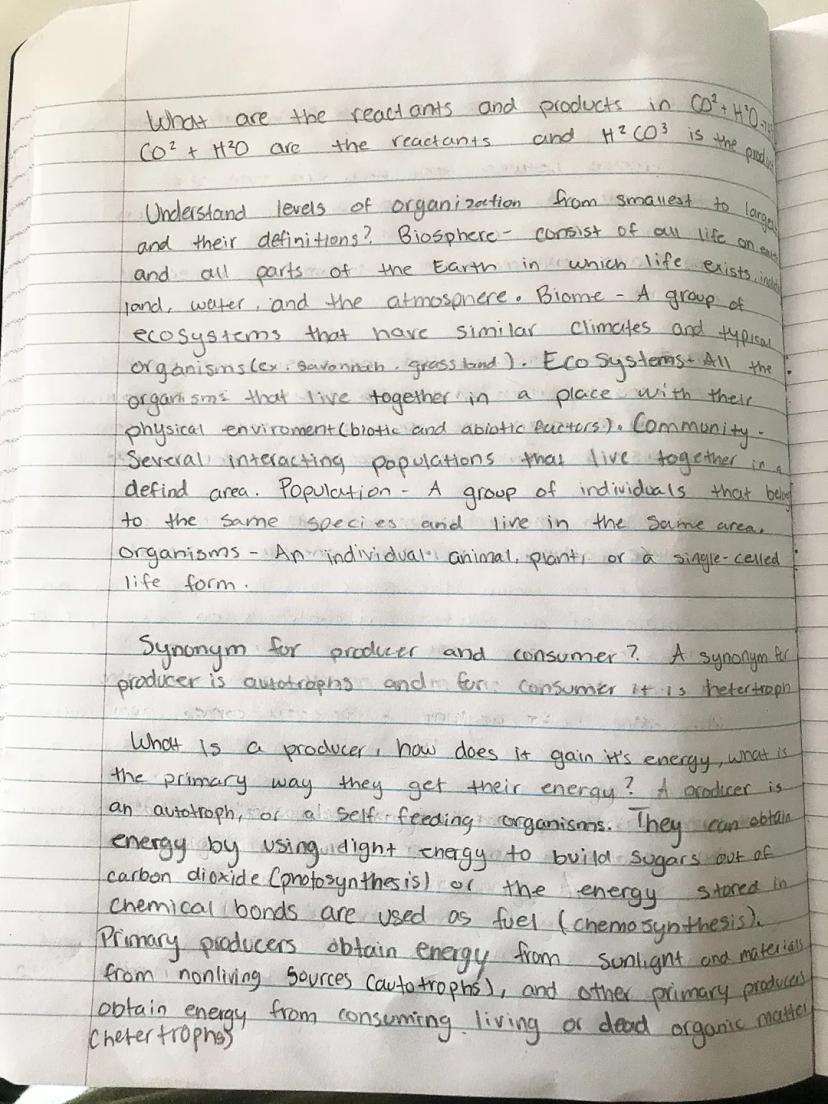 What are the reactants and products in CO² + H²O
CO² + H²O are the reactants and H² CO³ is the
Understand levels of organization from smallest to
and their definitions? Biosphere - consist of all life on
and all parts of the Earth in which life exists,
land, water, and the atmosphere. Biome - A group of
ecosystems that have similar climates and typical
organisms (ex. savannah, grassland). Eco Systems - All the
organisms that live together in a place with their
physical enviroment (biotic and abiotic factors). Community -
Several interacting populations that live together in a
defind area. Population - A group of individuals that
to the same species and live in the same area.
organisms - An individual animal, plant, or a single-celled
life form.
Synonym for producer and consumer? A synonym for
producer is autotrophs and for consumer it is hetertroph
What is a producer, how does it gain it's energy, what is
the primary way they get their energy? A producer is
an autotroph, or a self feeding organisms. They can obtain
energy by using light energy to build sugars out of
carbon dioxide (photosynthesis) or the energy stored in
chemical bonds are used as fuel (chemosynthesis).
Primary producers obtain energy from sunlight and materials
from nonliving sources (autotrophs), and other primary producers
obtain energy from consuming living or dead organic matter
(hetertrophs)